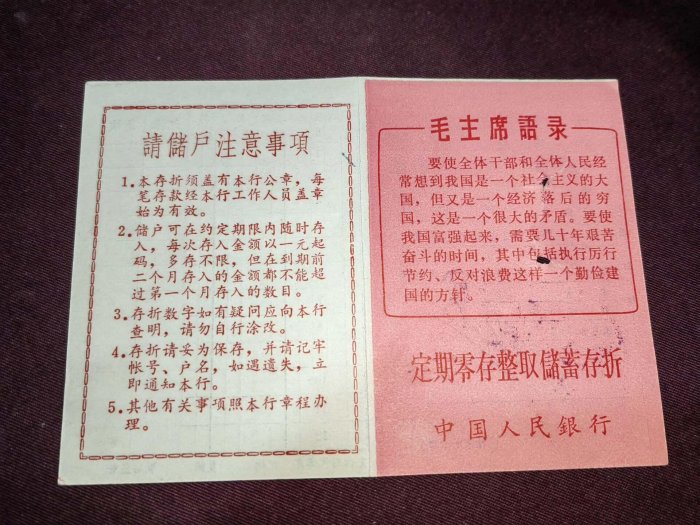 請儲戶注意事項
1.本存折须盖有本行公章，每
笔存款经本行工作人员盖章
始为有效。
2.储户可在约定期限内随时存
入，每次存入金额以一元起
码，多存不限，但在到期前
二个月存入的金额都不能超
过第一个月存入的数目。
3.存折数字如有疑问应向本行
查明，请勿自行涂改。
4.存折请妥为保存，并请记牢
帐号、户名，如遇遗失，立
即通知本行。
5.其他有关事项照本行章程办
理。
毛主席語录
要使全体干部和全体人民经
常想到我国是一个社会主义的大
国，但又是一个经济落后的穷
国，这是一个很大的矛盾。要使
我国富强起来，需要几十年艰苦
奋斗的时间，其中包括执行厉行
节约、反对浪费这样一个勤俭建
国的方针。
定期零存整取儲蓄存折
中国人民銀行